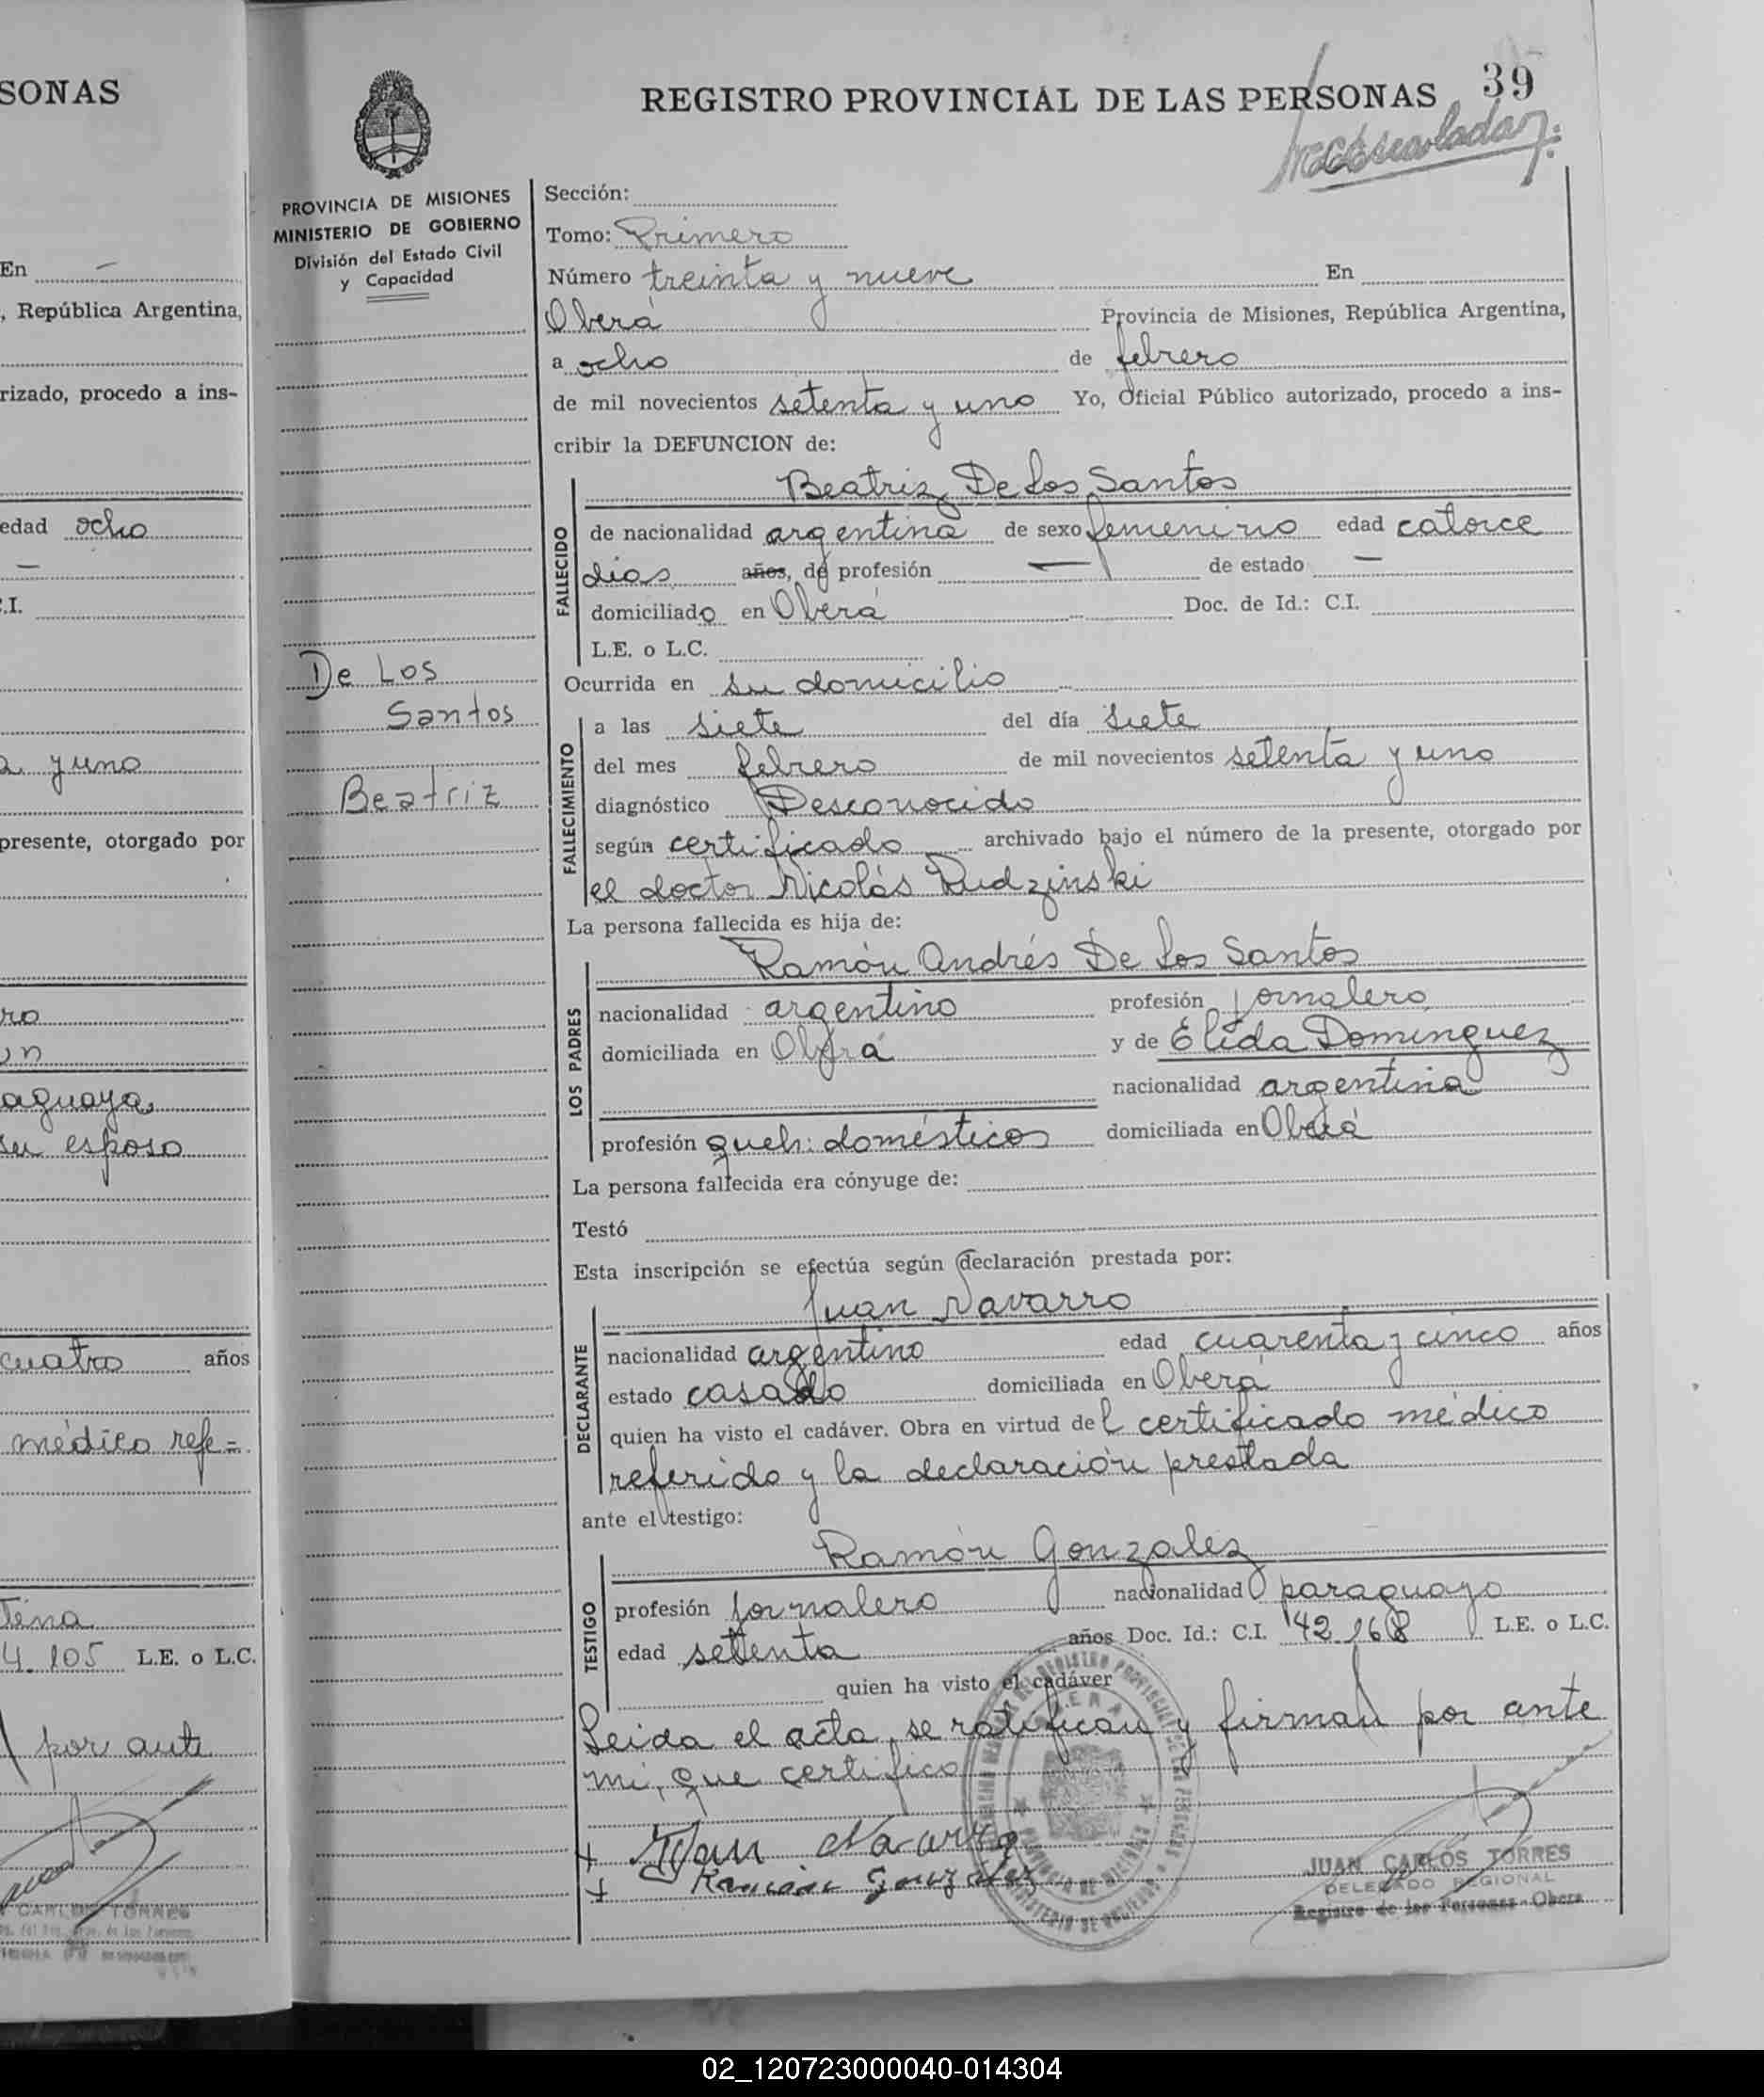 SONAS
En –
, República Argentina,
rizado, procedo a ins-
edad ocho
–
C.I.
a y uno
presente, otorgado por
ro
un
aguaya
su esposo
cuatro años
médico refe=
tina
4.105 L.E. o L.C.
por ante
CARLOS TORRES
REGISTRO PROVINCIAL DE LAS PERSONAS 39
PROVINCIA DE MISIONES
MINISTERIO DE GOBIERNO
División del Estado Civil
y Capacidad
De Los
Santos
Beatriz
Sección:
Tomo: Primero
Número treinta y nueve En
Oberá Provincia de Misiones, República Argentina,
a ocho de febrero
de mil novecientos setenta y uno Yo, Oficial Público autorizado, procedo a ins-
cribir la DEFUNCION de:
Beatriz De Los Santos
FALLECIDO
de nacionalidad argentina de sexo femenino edad catorce
dias años, de profesión — de estado —
domiciliado en Oberá Doc. de Id.: C.I.
L.E. o L.C.
Ocurrida en su domicilio
FALLECIMIENTO
a las siete del día siete
del mes febrero de mil novecientos setenta y uno
diagnóstico Desconocido
según certificado archivado bajo el número de la presente, otorgado por
el doctor Nicolás Rudzinski
La persona fallecida es hija de:
Ramón Andrés De Los Santos
LOS PADRES
nacionalidad argentino profesión jornalero
domiciliada en Oberá y de Élida Dominguez
nacionalidad argentina
profesión queh: domésticos domiciliada en Oberá
La persona fallecida era cónyuge de:
Testó
Esta inscripción se efectúa según declaración prestada por:
Juan Navarro
DECLARANTE
nacionalidad argentino edad cuarenta y cinco años
estado casado domiciliada en Oberá
quien ha visto el cadáver. Obra en virtud del certificado médico
referido y la declaración prestada
ante el testigo:
Ramón Gonzalez
TESTIGO
profesión jornalero nacionalidad paraguayo
edad setenta años Doc. Id.: C.I. 42.168 L.E. o L.C.
quien ha visto el cadáver
Leida el acta, se ratifican y firman por ante
mi, que certifico
+ Juan Navarro
+ Ramón Gonzalez
JUAN CARLOS TORRES
DELEGADO REGIONAL
Registro de las Personas - Obera
02_120723000040-014304